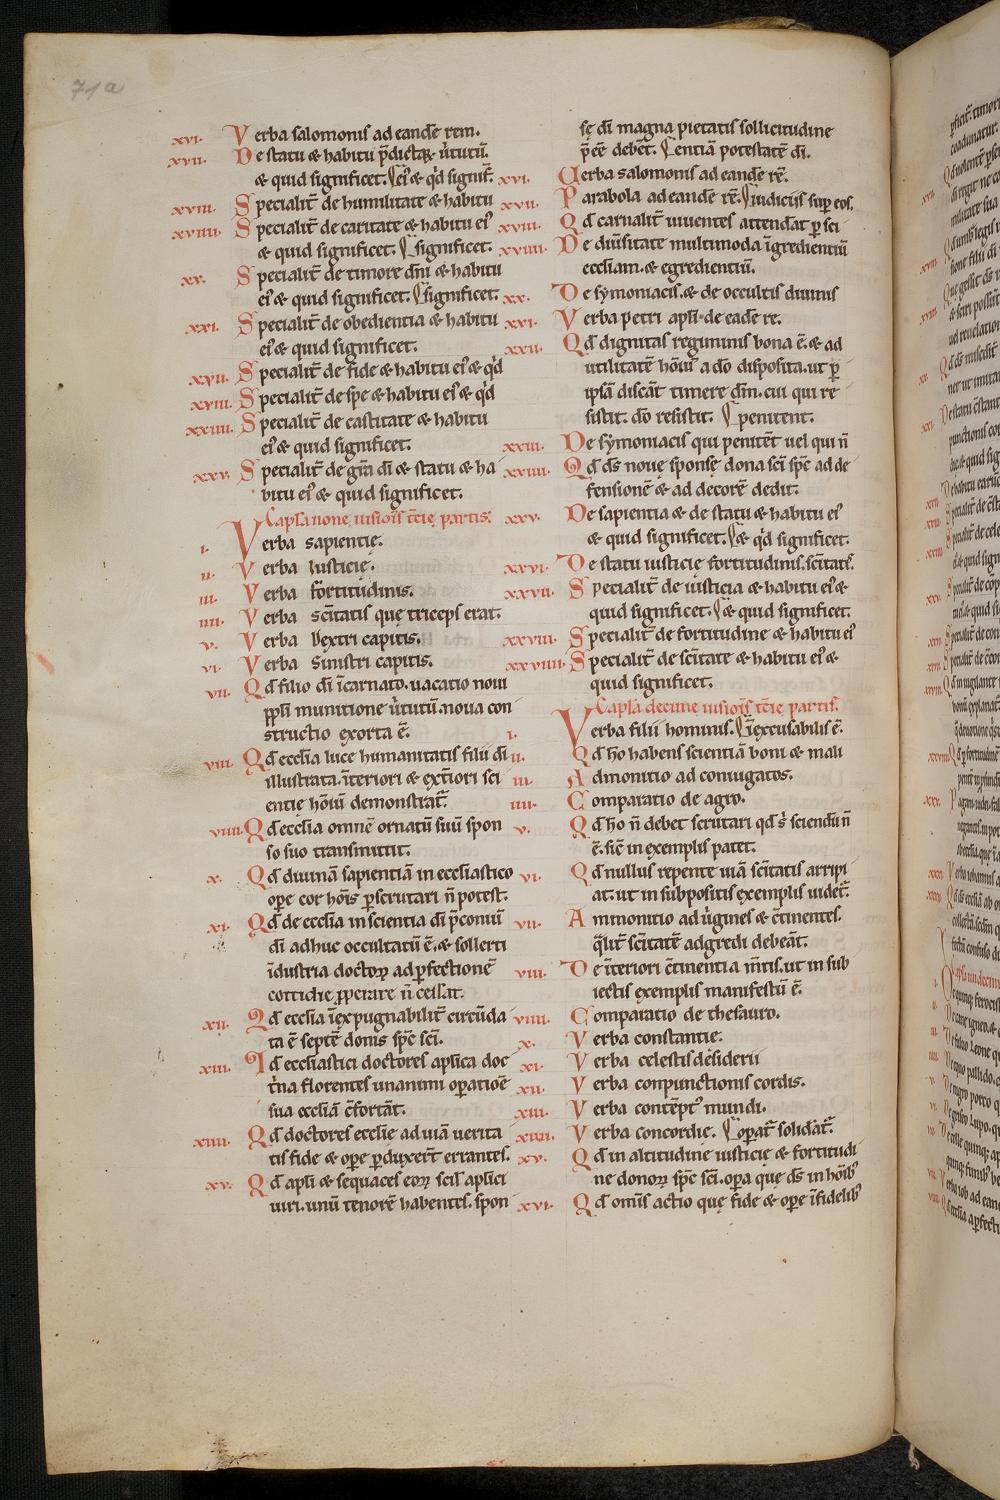 71a
xvi. Verba salomonis ad eandē rem.
xvii. De statu & habitu p̄dictaꝝ v̓tutū.
& quid significet. ⁋ eiꝰ & qd signif̄.
xviii. Specialit̄ de humilitate & habitu
xviiii. Specialit̄ de caritate & habitu eiꝰ
& quid significet. ⁋ significet.
xx. Specialit̄ de timore dn̄i & habitu
eiꝰ & quid significet. ⁋ significet.
xxi. Specialit̄ de obedientia & habitu
eiꝰ & quid significet.
xxii. Specialit̄ de fide & habitu eiꝰ & qd
xxiii. Specialit̄ de spe & habitu eiꝰ & qd
xxiiii. Specialit̄ de castitate & habitu
eiꝰ & quid significet.
xxv. Specialit̄ de gr̄a dī & statu & ha
bitu eiꝰ & quid significet.
Capl̄a none uisiōis t̄cię partis.
i. Verba sapientię.
ii. Verba iusticię.
iii. Verba fortitudinis.
iiii. Verba sc̄itatis quę triceps erat.
v. Verba dextri capitis.
vi. Verba sinistri capitis.
vii. Qd filio dī īcarnato. uacatio noui
ꝓpl̄i munitione v̓tutū. noua con
structio exorta ē.
viii. Qd eccl̄ia luce humanitatis filii dī
illustrata. īteriori & ext̄iori sci
entię hōiū demonstrat̄.
viiii. Qd eccl̄ia omnē ornatū suū spon
so suo transmittit.
x. Qd diuinā sapientiā in eccl̄iastico
ope cor hōis ꝑscrutari n̄ potest.
xi. Qd de eccl̄ia in scientia dī p̄cōniū
dī adhuc occultatū ē. & sollerti
īdustria doctoꝝ ad ꝑfectionē
cottidie ꝓperare n̄ cessat.
xii. Qd eccl̄ia īexpugnabilit̄ circūda
ta ē septē donis sp̄c sc̄i.
xiii. Qd eccl̄iastici doctores apl̄ica doc
t̄na florentes unanimi opatiōe
sua eccl̄iā c̄fortāt.
xiiii. Qd doctores eccl̄ię ad uiā uerita
tis fide & ope ꝑduxer̄t errantes.
xv. Qd apl̄i & sequaces eoꝝ scil̄ apl̄ici
uiri. unū tenorē habentes. spon
sę dī magna pietatis sollicitudine
p̄eē debēt. ⁋ entiā potestatē dī.
xvi. Verba salomonis ad eandē rē.
xvii. Parabola ad eandē rē. ⁋ iudiciis suꝑ eos.
xviii. Qd carnalit̄ uiuentes attendāt ꝑ sci
xviiii. De diūsitate multimoda īgredientiū
eccl̄iam. & egredientiū.
xx. De symoniacis. & de occultis diuinis
xxi. Verba petri apl̄i. de eadē re.
xxii. Qd dignitas regiminis bona ē. & ad
utilitatē hōiū a dō disposita. ut ꝑ
ipsā discāt timere dm̄. cui qui re
sistit. dō resistit. ⁋ penitent.
xxiii. De symoniacis qui penitēt uel qui n̄
xxiiii. Qd ds̄ nouę sponsę dona sc̄i sp̄c ad de
fensionē & ad decorē dedit.
xxv. De sapientia & de statu & habitu eiꝰ
& quid significet. ⁋ & qd significet.
xxvi. De statu iusticię fortitudinis. sc̄itatꝭ.
xxvii. Specialit̄ de iusticia & habitu eiꝰ &
quid significet. ⁋ & quid significet.
xxviii. Specialit̄ de fortitudine & habitu eiꝰ
xxviiii. Specialit̄ de sc̄itate & habitu eiꝰ &
quid significet.
Capl̄a decimę uisiōis t̄cię partis.
i. Verba filii hominis. ⁋ īexcusabilis ē.
ii. Qd hō habens scientiā boni & mali
iii. Admonitio ad coniugatos.
iiii. Comparatio de agro.
v. Qd hō n̄ debet scrutari qd s̄ sciendū n̄
ē. sic̄ in exemplis patet.
vi. Qd nullus repente uiā sc̄itatis arripi
at. ut in subpositis exemplis uidet̄.
vii. Ammonitio ad v̓gines & c̄tinentes.
qlit̄ sc̄itatē adgredi debeāt.
viii. De īteriori c̄tinentia m̄tis. ut in sub
iectis exemplis manifestū ē.
viiii. Comparatio de thesauro.
x. Verba constantię.
xi. Verba celestis desiderii
xii. Verba conpunctionis cordis.
xiii. Verba contēptꝰ mundi.
xiiii. Verba concordię. ⁋ opat̄ solidāt̄.
xv. Qd in altitudine iusticię & fortitudi
ne donoꝝ sp̄c sc̄i. opa que ds̄ in hōibꝰ
xvi. Qd omīs actio quę fide & ope īfidelibꝰ